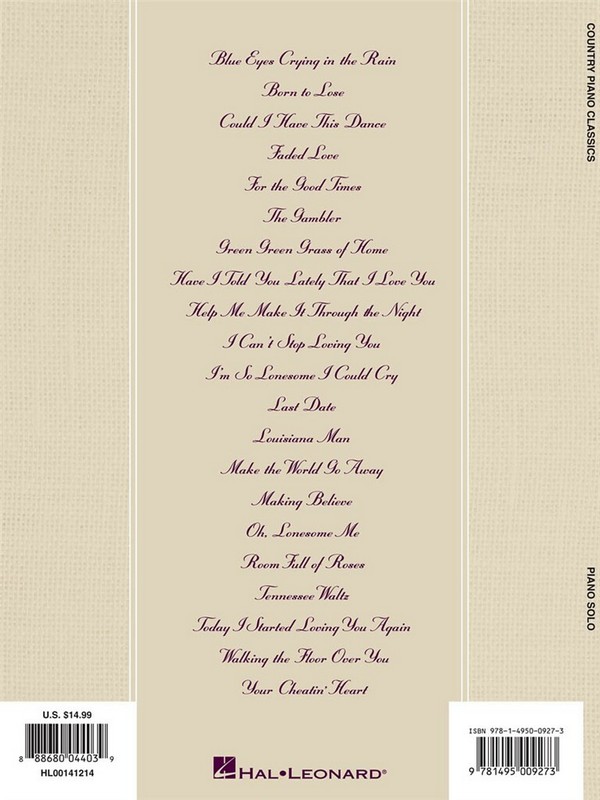 Blue Eyes Crying in the Rain
Born to Lose
Could I Have This Dance
Faded Love
For the Good Times
The Gambler
Green Green Grass of Home
Have I Told You Lately That I Love You
Help Me Make It Through the Night
I Can't Stop Loving You
I'm So Lonesome I Could Cry
Last Date
Louisiana Man
Make the World Go Away
Making Believe
Oh, Lonesome Me
Room Full of Roses
Tennessee Waltz
Today I Started Loving You Again
Walking the Floor Over You
Your Cheatin' Heart
COUNTRY PIANO CLASSICS
PIANO SOLO
U.S. $14.99
8 88680 04403 9
HL00141214
HAL•LEONARD®
ISBN 978-1-4950-0927-3
9 781495 009273